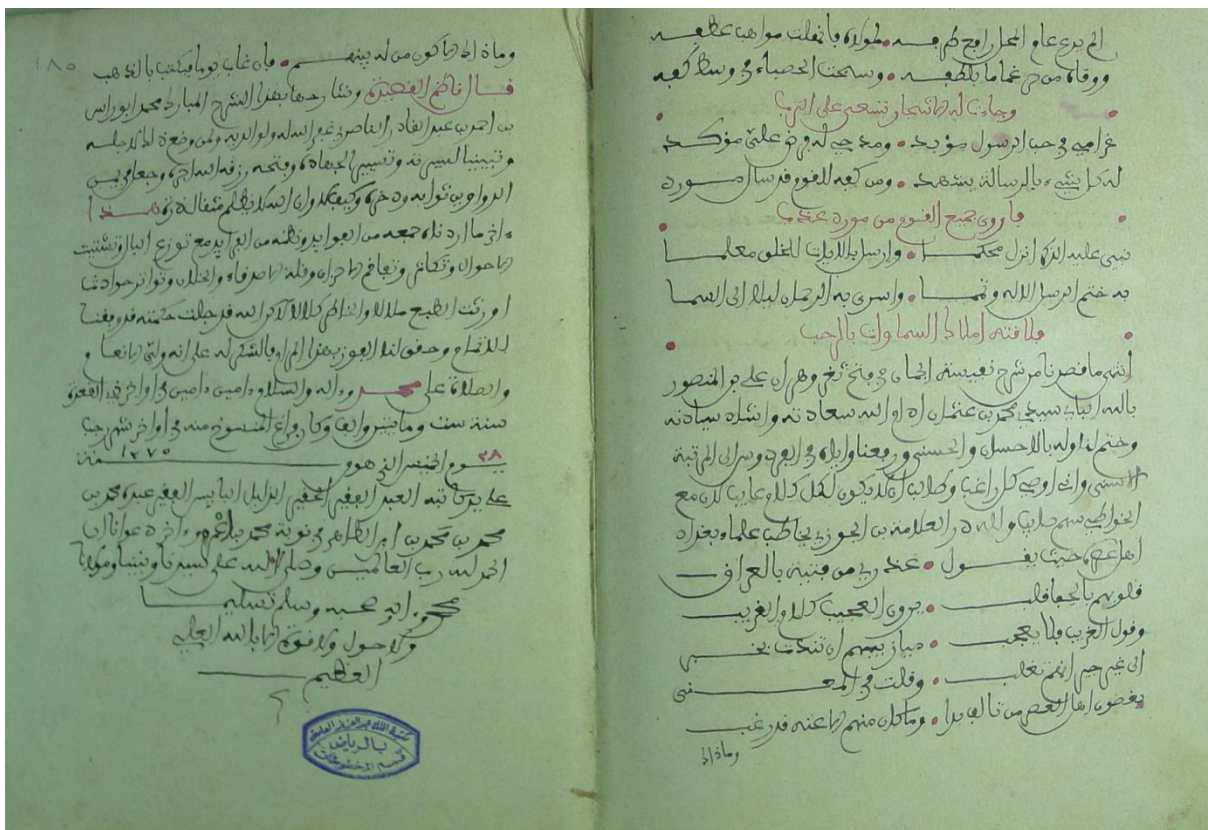 الم يرع عام المحل رايح طرفه • لمولده فانهلت مواهب عطفه
ووفاه من حر غماما بلطفه • وسبحت الحصباء في وسط كفه
وجاءت له الاشجار تسعى على الترب
غرامي في حب الرسول مؤيد • ومدحي له فرض علي مؤكد
له كل شيء بالرسالة يشهد • ومن كفه للقوم قد سال مورد
فاروى جميع القوم من مورد عذب
نبي عليه الذكر انزل محكما • وارسل بالايات للخلق معلما
به ختم الرسل الاله وتمما • واسرى به الرحمان ليلا الى السما
فلاقته املاك السماوات بالرحب
انتهى ما قصدنا من شرح نفيسة الجمان في فتح ثغر وهران على يد المنصور
بالله الباي سيدي محمد بن عثمان ادام الله سعادته وانشاء سيادته
وختم لنا وله بالاحسان والحسنى ورفعنا واياه في الفردوس الى المرتبة
الاسنى واني اوصي كل راغب وطالب ان لا يكون لكل كلام عايب لان مع
الخواطي سهم صايب ولله در العلامة بن الجوزي يخاطب علماء بغداد
اهل عصره حيث يقول • عذيري من فتية بالعراق
قلوبهم بالجفا قلب • يرون العجيب كلام الغريب
وقول القريب فلا يعجب • ميازيبهم ان تندت بخير
الى غير جيرانهم تقلب • وقلت في المعنى
بغضون اهل العصر من تالف بدا • وما كان منهم الا عنه قد رغب
وماذاك
١٨٥
وماذاك الا كون من له بينهم • فان غاب يوما فيكتب بالذهب
قال ناظم القصيدة وشارحها بهذا الشرح المبارك محمد ابو راس
بن احمد بن عبد القادر الناصري غفر الله له ولوالديه ولمن وضع هذا لاجله
وتبيينا لسيرته وتسيير الجهاده وفتحه رزقه الله اجره وجعل في
الدواوين ثوابه وذخره وكيف لا وان الله لا يظلم مثقال ذرة هذا
ءاخر ما اردنا جمعه من الفوايد ونظمه من الفرايد مع توزع البال وتشتيت
الاحوال وتكاثر وتفاقم الاحزان وقلة الاصدقاء والخلان وتواتر حوادث
اورثت الطبع ملالا والخاطر كلالا لاكن الله قد جلت حكمته قد وفقنا
للاتمام وحقق لنا الفوز بهذا المرام فالشكر له على انه ولي الانعام
والصلاة على محمد وءاله والسلام ءامين ءامين في اواخر ذي القعدة
سنة ست ومايتين والف وكان فراغ المنسوخ منه في اواخر شهر رجب
يوم الخميس الذي هو ٢٨ سنة ١٢٧٥
على يد كاتبه العبد الفقير الحقير الذليل البايس الفقير عبده محمد بن
محمد بن محمد بن الطاهر وءاخر دعوانا ان
الحمد لله رب العالمين وصلى الله على سيدنا ونبينا ومولانا
محمد وءاله وصحبه وسلم تسليما
ولا حول ولا قوة الا بالله العلي
العظيم
مكتبة الملك عبد العزيز العامة
بالرياض
قسم المخطوطات